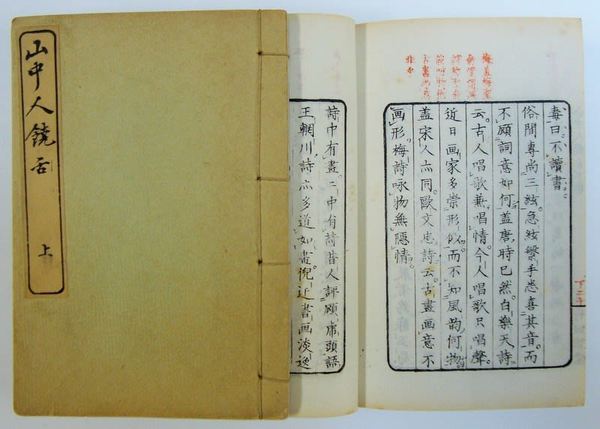 山中人饒舌
上
毎曰。不讀書。
俗間專尚三絃。急絃繁手悉喜其音。而
不顧詞意如何。蓋唐時已然。白樂天詩
云。古人唱歌兼唱情。今人唱歌只唱聲。
近日画家多崇形似。而不知風韵何物
蓋宋人亦同。歐文忠詩云。古畫画意不
画形。梅詩咏物無隠情。
詩中有畫。〻中有詩。昔人評
王輞川詩亦多道如畫。倪迂書画淡逸